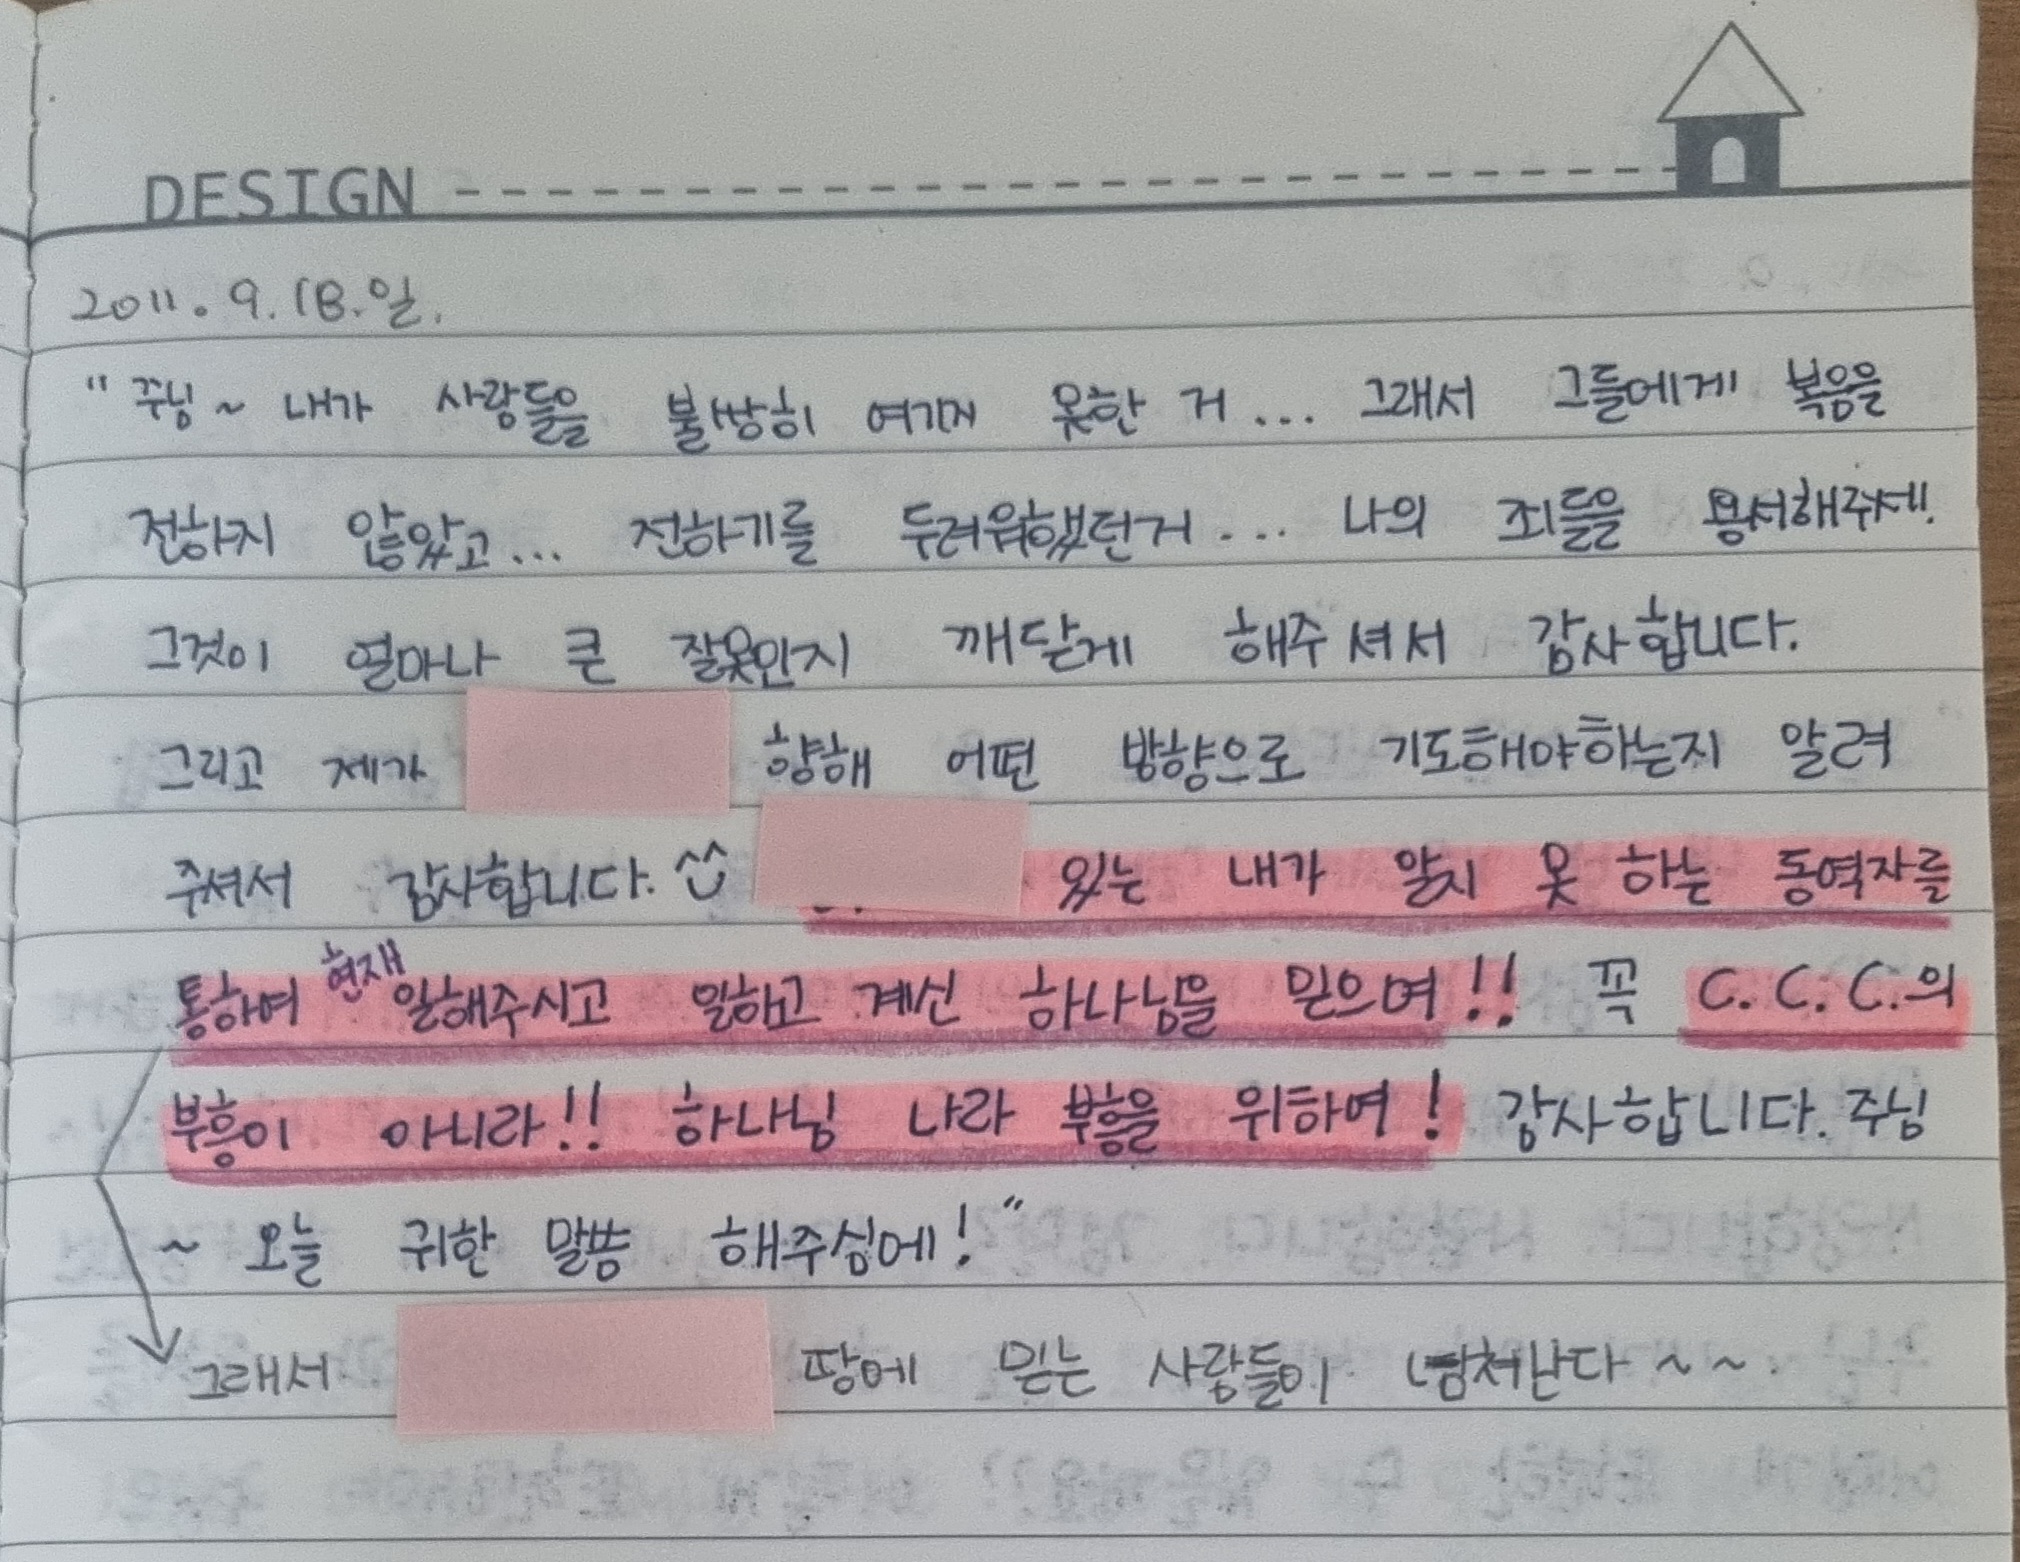 DESIGN
2011. 9. 18. 일.
"주님~ 내가 사람들을 불쌍히 여기지 못한 거... 그래서 그들에게 복음을
전하지 않았고... 전하기를 두려워했던거... 나의 죄들을 용서해주세!
그것이 얼마나 큰 잘못인지 깨닫게 해주셔서 감사합니다.
그리고 제가 향해 어떤 방향으로 기도해야하는지 알려
주셔서 감사합니다. ^^ 있는 내가 알지 못 하는 동역자를
통하여 현재 일해주시고 일하고 계신 하나님을 믿으며!! 꼭 C.C.C.의
부흥이 아니라!! 하나님 나라 부흥을 위하여! 감사합니다. 주님
~ 오늘 귀한 말씀 해주심에!"
그래서 땅에 믿는 사람들이 넘쳐난다~~